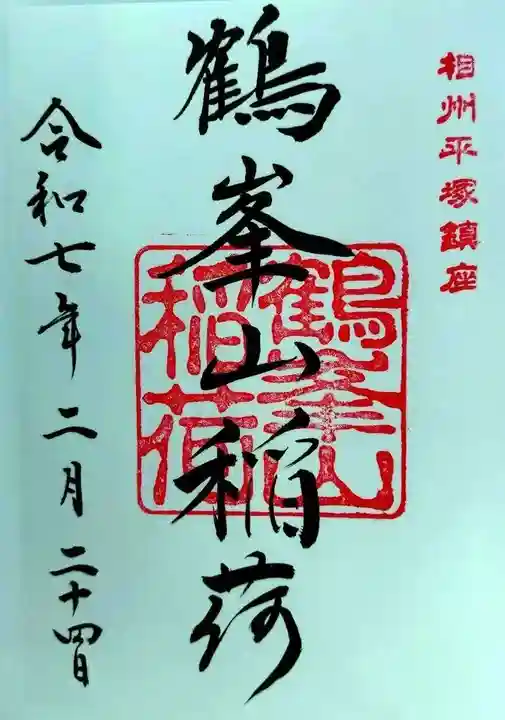 相州平塚鎮座
鶴峯山稲荷
鶴峯山
稲荷
令和七年二月二十四日